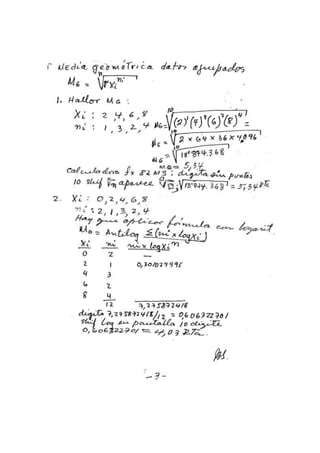 Media geométrica datos agrupados
MG = ⁿ√πXi^ni
1. Hallar MG :
Xi : 2, 4, 6, 8
ni : 1, 3, 2, 4 MG = ¹⁰√(2)¹(4)³(6)²(8)⁴
MG = ¹⁰√2 x 64 x 36 x 4,096
MG = ¹⁰√18'874.368
MG = 5,34
Calculadora fx 82 MS : digita sin puntos
10 shif ⁿ√ aparece ˣ√ ; √18'874.368 = 5,34 Rta
2. Xi : 0, 2, 4, 6, 8
ni : 2, 1, 3, 2, 4
Hay que aplicar fórmula con logarit.
MG = Antilog Σ(ni x logXi)
Xi ni ni x logXi
0 2 —
2 1 0,301029995
4 3
6 2
8 4
12 7,275872418
digita 7,275872418/12 = 0,606322701
shif log en pantalla 10 digita
0,606322701 = 4,03 Rta.
-3-